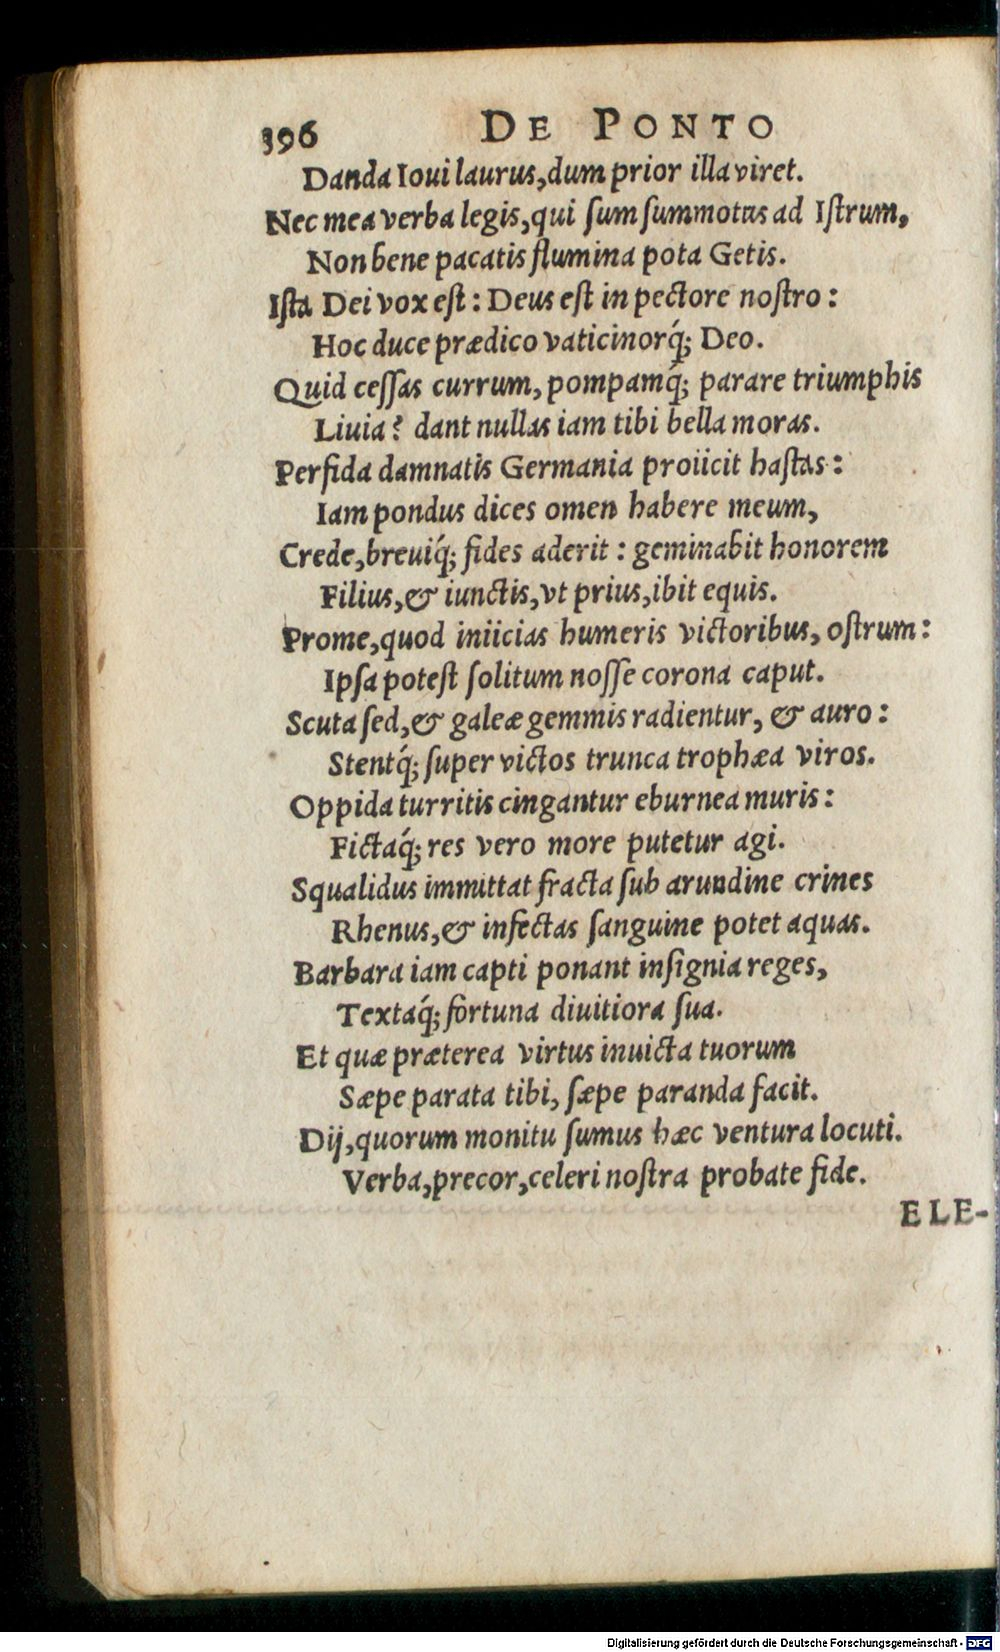 396 DE PONTO
Danda Ioui laurus, dum prior illa viret.
Nec mea verba legis, qui ſum ſummotus ad Iſtrum,
Non bene pacatis flumina pota Getis.
Iſta Dei vox eſt: Deus eſt in pectore noſtro:
Hoc duce prædico vaticinorq́; Deo.
Quid ceſſas currum, pompamq́; parare triumphis
Liuia? dant nullas iam tibi bella moras.
Perfida damnatis Germania proiicit haſtas:
Iam pondus dices omen habere meum,
Crede, breuiq́; fides aderit: geminabit honorem
Filius, & iunctis, vt prius, ibit equis.
Prome, quod iniicias humeris victoribus, oſtrum:
Ipſa poteſt ſolitum noſſe corona caput.
Scuta ſed, & galeæ gemmis radientur, & auro:
Stentq́; ſuper victos trunca trophæa viros.
Oppida turritis cingantur eburnea muris:
Fictaq́; res vero more putetur agi.
Squalidus immittat fracta ſub arundine crines
Rhenus, & infectas ſanguine potet aquas.
Barbara iam capti ponant inſignia reges,
Textaq́; fortuna diuitiora ſua.
Et quæ præterea virtus inuicta tuorum
Sæpe parata tibi, ſæpe paranda facit.
Dij, quorum monitu ſumus hæc ventura locuti.
Verba, precor, celeri noſtra probate fide.
ELE-
Digitalisierung gefördert durch die Deutsche Forschungsgemeinschaft - DFG